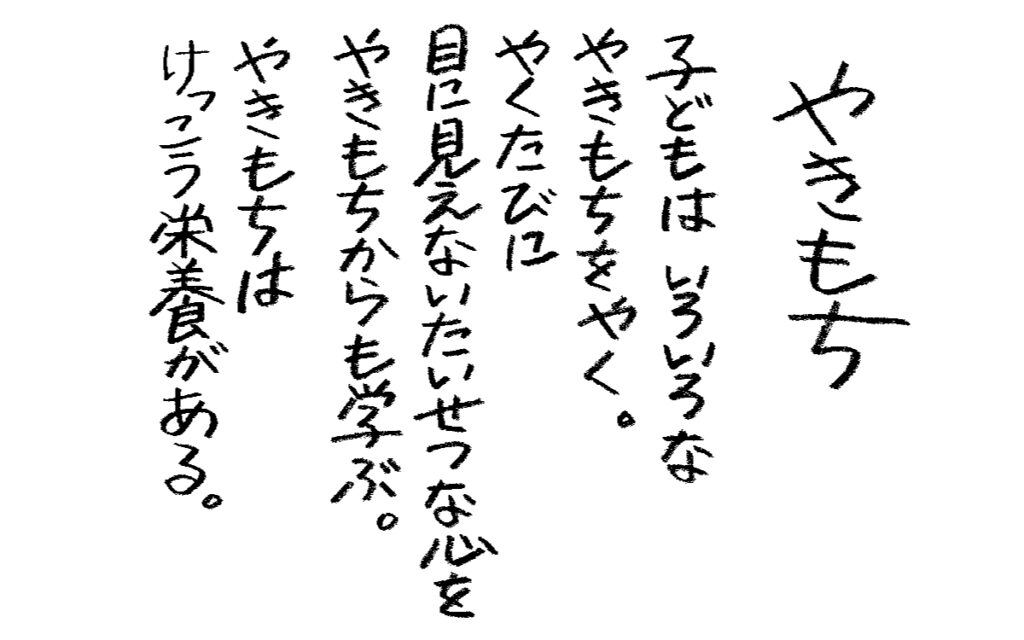 やきもち
子どもは いろいろな
やきもちをやく。
やくたびに
目に見えないたいせつな心を
やきもちからも学ぶ。
やきもちは
けっこう栄養がある。